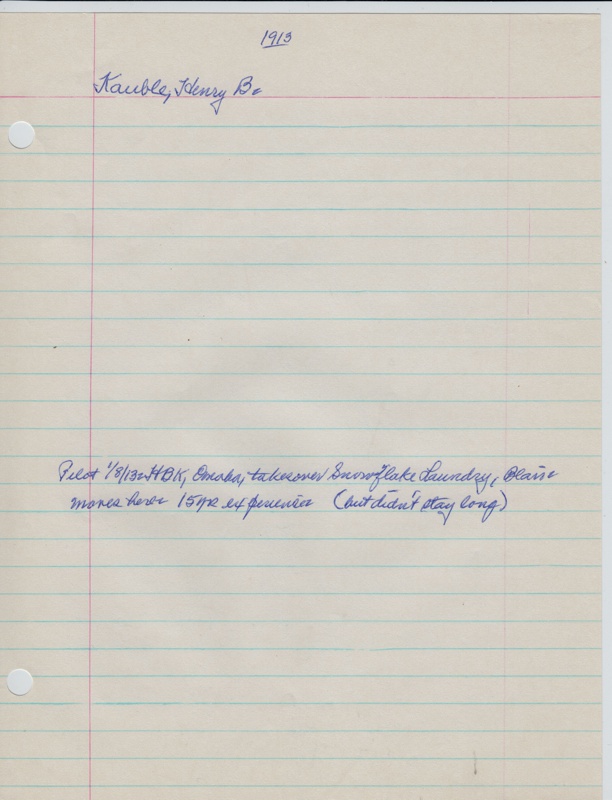 1913
Kauble, Henry B.
Pilot 1/8/13. HBK, Omaha, takesover Snowflake Laundry, Blair.
moves here. 15 yrs experience (but didn't stay long)